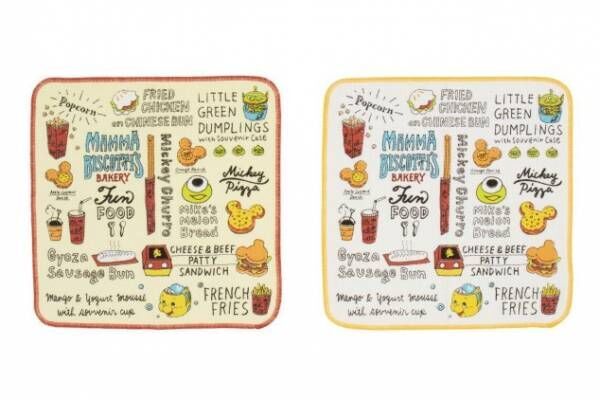 Popcorn
FRIED
CHICKEN
on CHINESE BUN
LITTLE
GREEN
DUMPLINGS
with Souvenir Case
MAMMA
BISCOTTI'S
BAKERY
Mickey Churro
Mickey
Pizza
Fun
FOOD
Mike's
Melon
Bread
Gyoza
Sausage Bun
CHEESE & BEEF
PATTY
SANDWICH
Mango & Yogurt mousse
with souvenir cup
FRENCH
FRIES
Popcorn
FRIED
CHICKEN
on CHINESE BUN
LITTLE
GREEN
DUMPLINGS
with Souvenir Case
MAMMA
BISCOTTI'S
BAKERY
Mickey Churro
Mickey
Pizza
Fun
FOOD
Mike's
Melon
Bread
Gyoza
Sausage Bun
CHEESE & BEEF
PATTY
SANDWICH
Mango & Yogurt mousse
with souvenir cup
FRENCH
FRIES